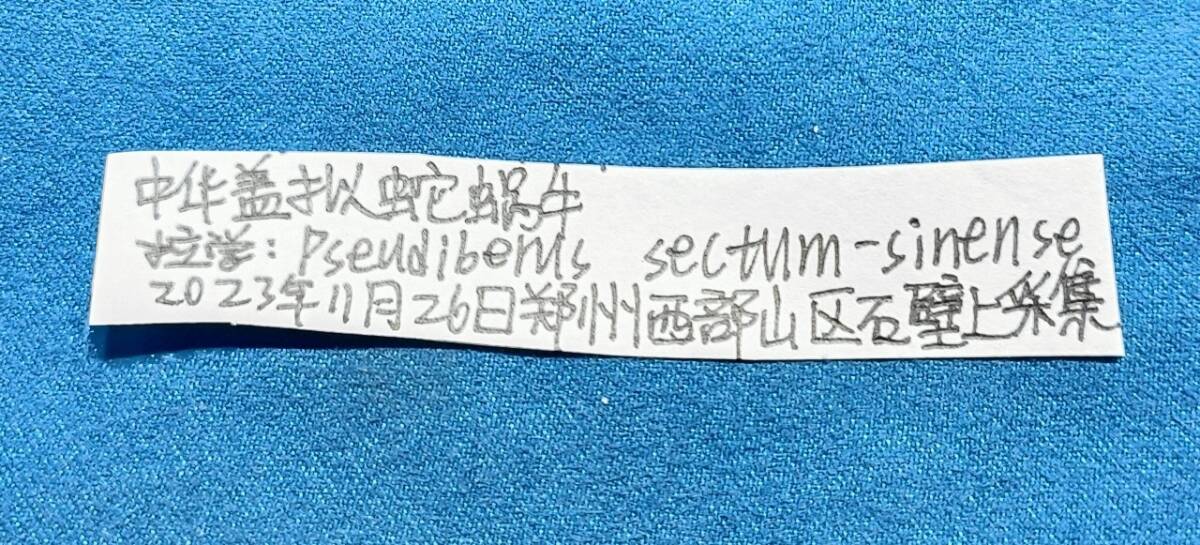 中华盖拟蛇蜗牛
拉学：Pseudiberus sectum-sinense
2023年11月26日郑州西部山区石壁上采集